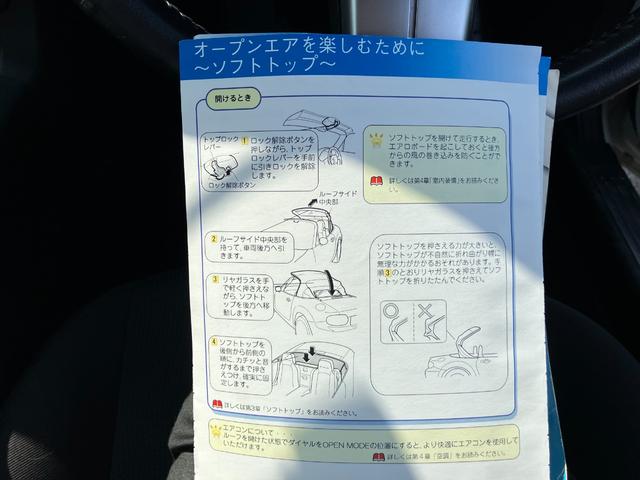 オープンエアを楽しむために
～ソフトトップ～
開けるとき
トップロック
レバー
ロック解除ボタン
1 ロック解除ボタンを
押しながら、トップ
ロックレバーを手前
に引きロックを解除
します。
ソフトトップを開けて走行するとき、
エアロボードを起こしておくと後方
からの風の巻き込みを防ぐことがで
きます。
詳しくは第4章「室内装備」をお読みくださ
い。
ルーフサイド
中央部
2 ルーフサイド中央部を
持って、車両後方へ引
きます。
3 リヤガラスを手
で軽く押さえな
がら、ソフトト
ップを後方へ移
動します。
ソフトトップを押さえる力が大きいと、
ソフトトップが不自然に折れ曲がり幌に
無理な力がかかるおそれがあります。手
順3のとおりリヤガラスを押さえてソフ
トトップを折りたたんでください。
4 ソフトトップを
後側から前側の
順に、カチッと音
がするまで押さ
えつけ、確実に固
定します。
詳しくは第3章「ソフトトップ」をお読みください。
エアコンについて・・・
ルーフを開けた状態でダイヤルをOPEN MODEの位置にすると、より快適にエアコンを使用して
いただけます。
詳しくは第4章「空調」をお読みください。